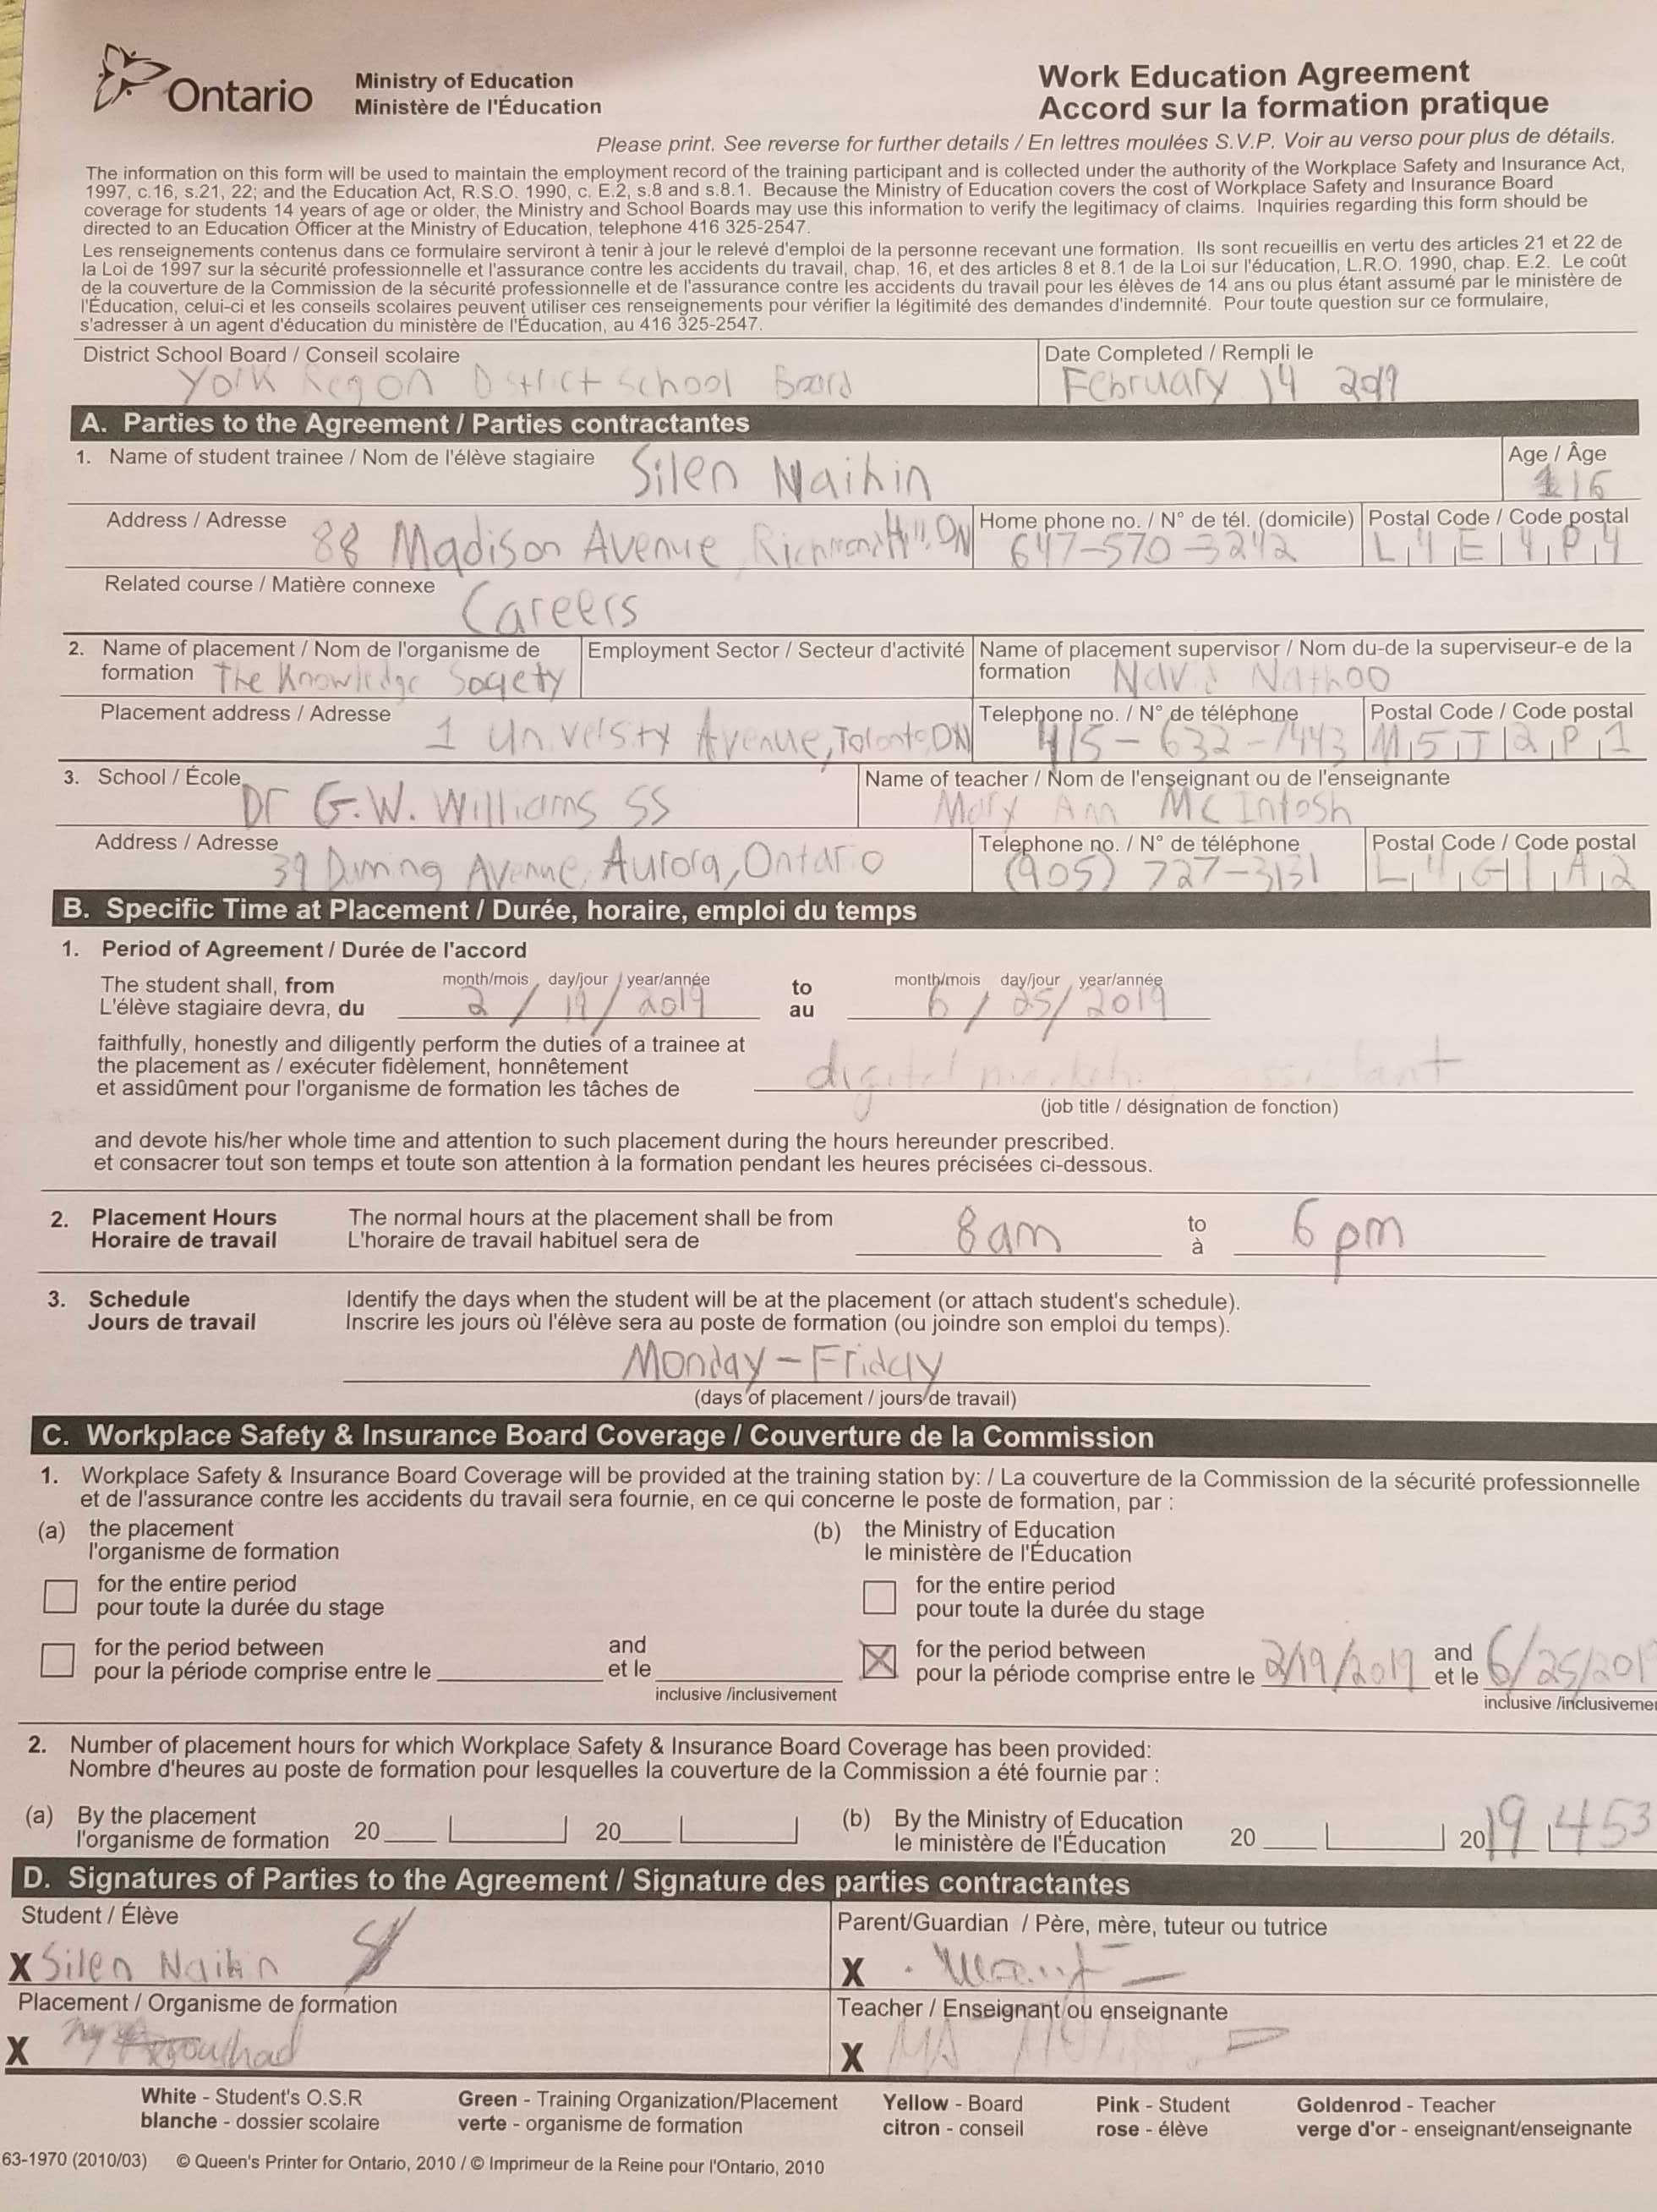 Ontario
Ministry of Education
Ministère de l'Éducation
Work Education Agreement
Accord sur la formation pratique
Please print. See reverse for further details / En lettres moulées S.V.P. Voir au verso pour plus de détails.
The information on this form will be used to maintain the employment record of the training participant and is collected under the authority of the Workplace Safety and Insurance Act,
1997, c.16, s.21, 22; and the Education Act, R.S.O. 1990, c. E.2, s.8 and s.8.1. Because the Ministry of Education covers the cost of Workplace Safety and Insurance Board
coverage for students 14 years of age or older, the Ministry and School Boards may use this information to verify the legitimacy of claims. Inquiries regarding this form should be
directed to an Education Officer at the Ministry of Education, telephone 416 325-2547.
Les renseignements contenus dans ce formulaire serviront à tenir à jour le relevé d'emploi de la personne recevant une formation. Ils sont recueillis en vertu des articles 21 et 22 de
la Loi de 1997 sur la sécurité professionnelle et l'assurance contre les accidents du travail, chap. 16, et des articles 8 et 8.1 de la Loi sur l'éducation, L.R.O. 1990, chap. E.2. Le coût
de la couverture de la Commission de la sécurité professionnelle et de l'assurance contre les accidents du travail pour les élèves de 14 ans ou plus étant assumé par le ministère de
l'Éducation, celui-ci et les conseils scolaires peuvent utiliser ces renseignements pour vérifier la légitimité des demandes d'indemnité. Pour toute question sur ce formulaire,
s'adresser à un agent d'éducation du ministère de l'Éducation, au 416 325-2547.
District School Board / Conseil scolaire
York Region District School Board
Date Completed / Rempli le
February 14 2019
A. Parties to the Agreement / Parties contractantes
1. Name of student trainee / Nom de l'élève stagiaire Silen Naihin
Age / Âge
16
Address / Adresse 88 Madison Avenue Richmond Hill, ON
Home phone no. / N° de tél. (domicile)
647-570-3242
Postal Code / Code postal
L4E 4P4
Related course / Matière connexe Careers
2. Name of placement / Nom de l'organisme de
formation The Knowledge Society
Employment Sector / Secteur d'activité
Name of placement supervisor / Nom du-de la superviseur-e de la
formation Navid Nathoo
Placement address / Adresse 1 University Avenue, Toronto ON
Telephone no. / N° de téléphone
415-632-7443
Postal Code / Code postal
M5J 2P1
3. School / École Dr G.W. Williams SS
Name of teacher / Nom de l'enseignant ou de l'enseignante
Mary Ann McIntosh
Address / Adresse 39 Dunning Avenue, Aurora, Ontario
Telephone no. / N° de téléphone
(905) 727-3131
Postal Code / Code postal
L4G 1A2
B. Specific Time at Placement / Durée, horaire, emploi du temps
1. Period of Agreement / Durée de l'accord
The student shall, from
L'élève stagiaire devra, du
month/mois day/jour year/année
2 / 19 / 2019
to
au
month/mois day/jour year/année
6 / 25 / 2019
faithfully, honestly and diligently perform the duties of a trainee at
the placement as / exécuter fidèlement, honnêtement
et assidûment pour l'organisme de formation les tâches de
digital marketing assistant
(job title / désignation de fonction)
and devote his/her whole time and attention to such placement during the hours hereunder prescribed.
et consacrer tout son temps et toute son attention à la formation pendant les heures précisées ci-dessous.
2. Placement Hours
Horaire de travail
The normal hours at the placement shall be from
L'horaire de travail habituel sera de
8am
to
à
6pm
3. Schedule
Jours de travail
Identify the days when the student will be at the placement (or attach student's schedule).
Inscrire les jours où l'élève sera au poste de formation (ou joindre son emploi du temps).
Monday - Friday
(days of placement / jours de travail)
C. Workplace Safety & Insurance Board Coverage / Couverture de la Commission
1. Workplace Safety & Insurance Board Coverage will be provided at the training station by: / La couverture de la Commission de la sécurité professionnelle
et de l'assurance contre les accidents du travail sera fournie, en ce qui concerne le poste de formation, par :
(a) the placement
l'organisme de formation
for the entire period
pour toute la durée du stage
for the period between
pour la période comprise entre le
and
et le
inclusive /inclusivement
(b) the Ministry of Education
le ministère de l'Éducation
for the entire period
pour toute la durée du stage
for the period between
pour la période comprise entre le 2/19/2019
and
et le 6/25/201
inclusive /inclusiveme
2. Number of placement hours for which Workplace Safety & Insurance Board Coverage has been provided:
Nombre d'heures au poste de formation pour lesquelles la couverture de la Commission a été fournie par :
(a) By the placement
l'organisme de formation
20
20
(b) By the Ministry of Education
le ministère de l'Éducation
20
2019 453
D. Signatures of Parties to the Agreement / Signature des parties contractantes
Student / Élève
X Silen Naihin
Parent/Guardian / Père, mère, tuteur ou tutrice
X
Placement / Organisme de formation
X
Teacher / Enseignant ou enseignante
X
White - Student's O.S.R
blanche - dossier scolaire
Green - Training Organization/Placement
verte - organisme de formation
Yellow - Board
citron - conseil
Pink - Student
rose - élève
Goldenrod - Teacher
verge d'or - enseignant/enseignante
63-1970 (2010/03) © Queen's Printer for Ontario, 2010 / © Imprimeur de la Reine pour l'Ontario, 2010